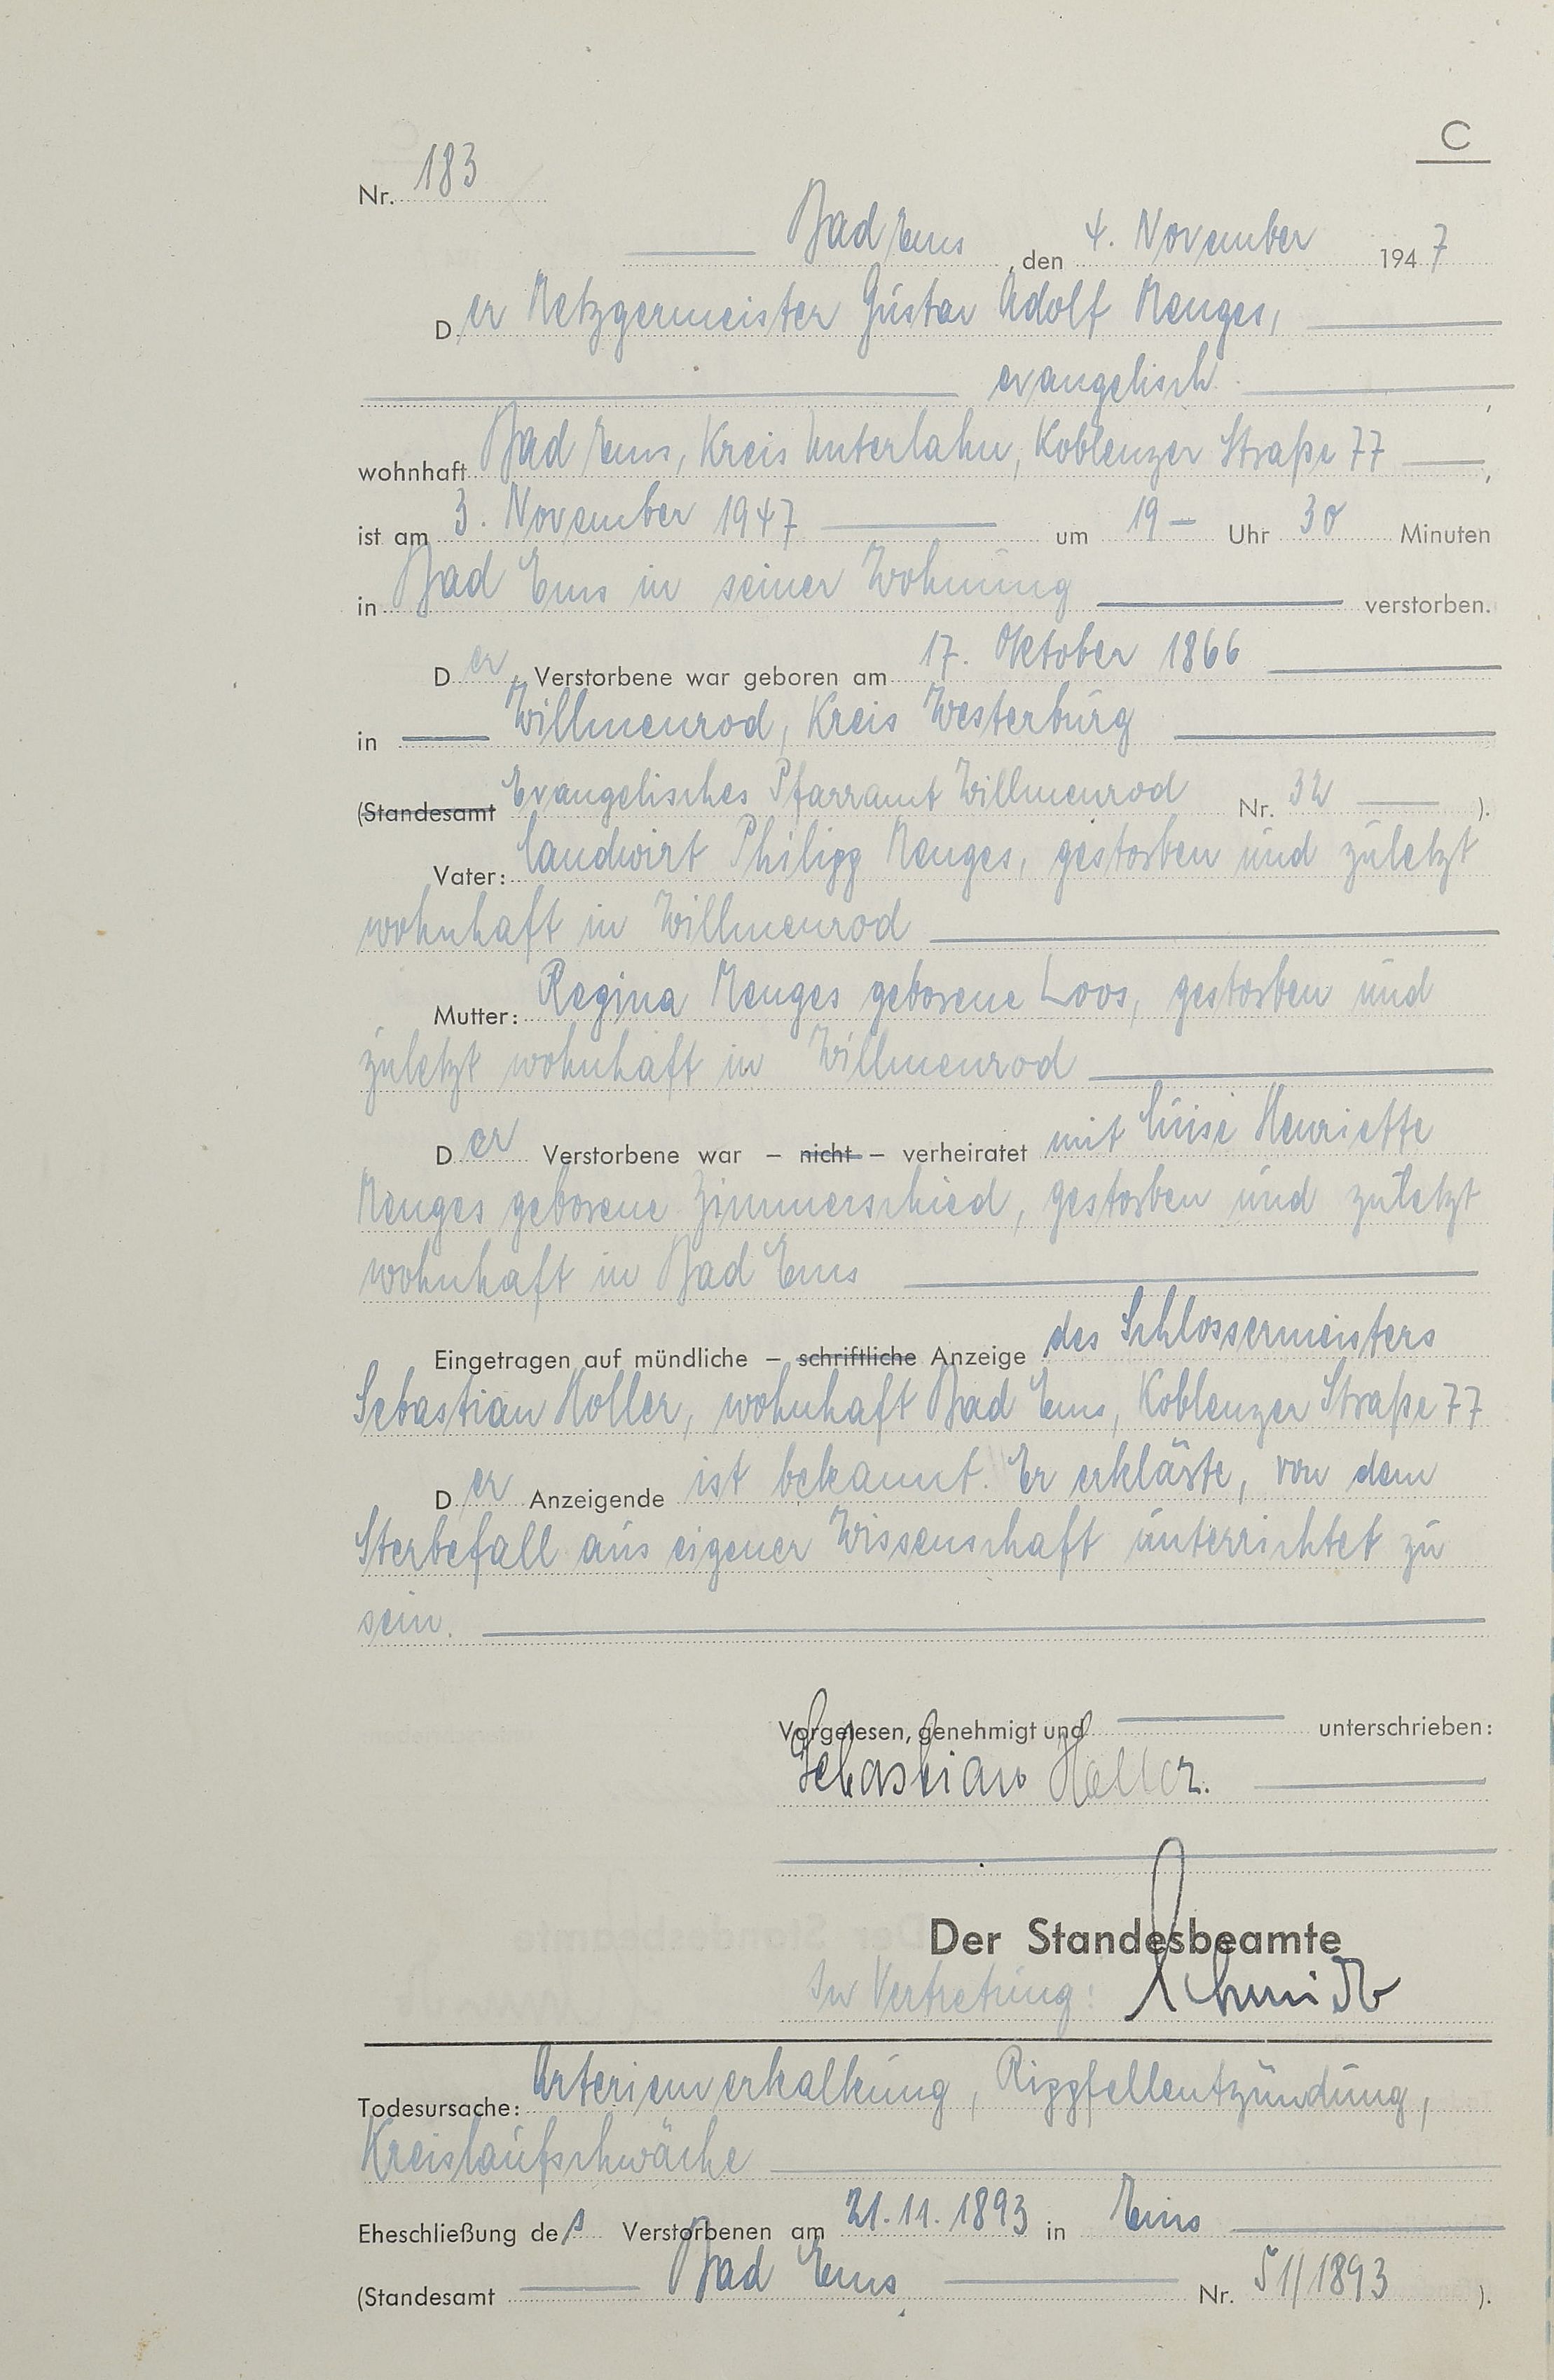 C
Nr. 183
Bad Ems, den 4. November 1947
Der Metzgermeister Gustav Adolf Menges,
evangelisch,
wohnhaft Bad Ems, Kreis Unterlahn, Koblenzer Straße 77,
ist am 3. November 1947 um 19 Uhr 30 Minuten
in Bad Ems in seiner Wohnung verstorben.
Der Verstorbene war geboren am 17. Oktober 1866
in Willmenrod, Kreis Westerburg
(Standesamt Evangelisches Pfarramt Willmenrod Nr. 32 ).
Vater: Landwirt Philipp Menges, gestorben und zuletzt
wohnhaft in Willmenrod
Mutter: Regina Menges geborene Loos, gestorben und
zuletzt wohnhaft in Willmenrod
Der Verstorbene war – nicht – verheiratet mit Luise Henriette
Menges geborene Zimmerschied, gestorben und zuletzt
wohnhaft in Bad Ems
Eingetragen auf mündliche – schriftliche Anzeige des Schlossermeisters
Sebastian Holler, wohnhaft Bad Ems, Koblenzer Straße 77
Der Anzeigende ist bekannt. Er erklärte, von dem
Sterbefall aus eigener Wissenschaft unterrichtet zu
sein.
Vorgelesen, genehmigt und unterschrieben:
Sebastian Holler.
Der Standesbeamte
In Vertretung: Schmidt
Todesursache: Arterienverkalkung, Rippfellentzündung,
Kreislaufschwäche
Eheschließung des Verstorbenen am 21.11.1893 in Ems
(Standesamt Bad Ems Nr. 51/1893 ).